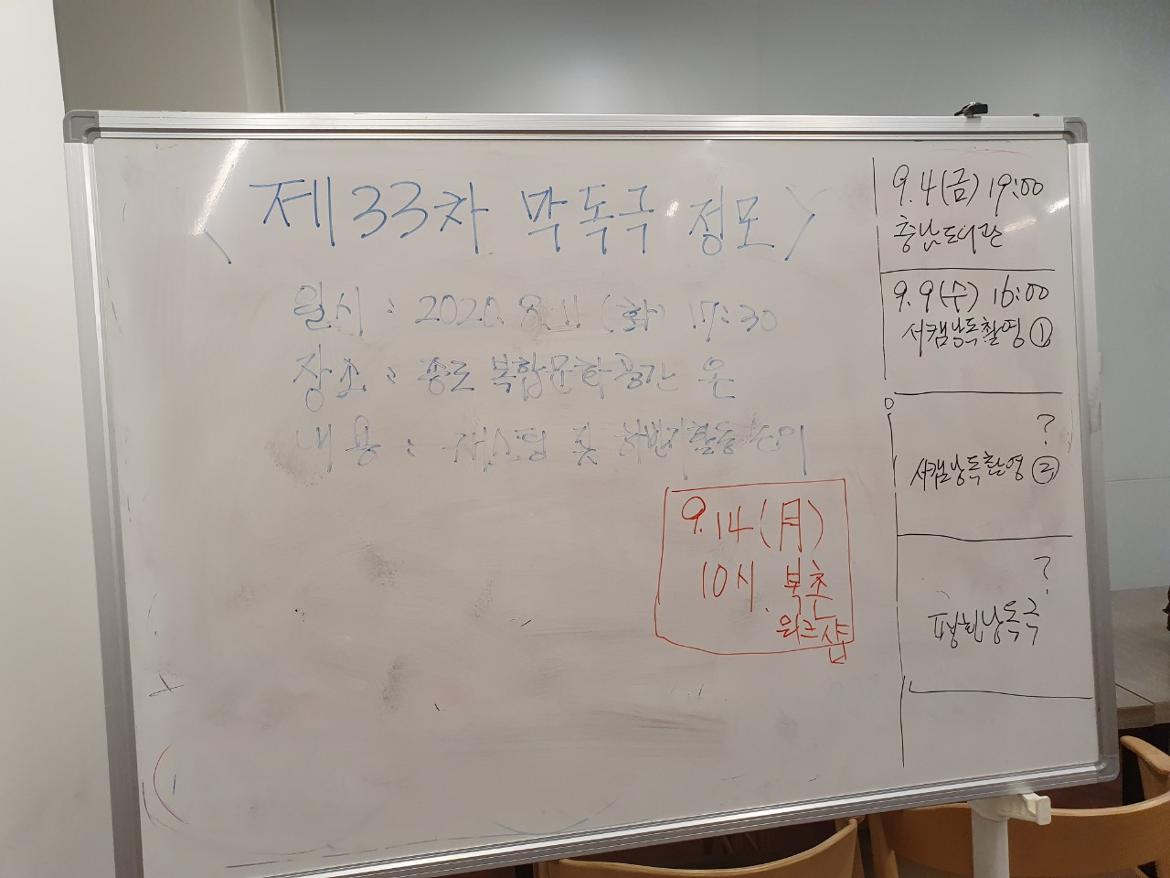 <제33차 막독극 정모>
일시 : 2020. 8. 11 (화) 17:30
장소 : 종로 복합문화공간 온
내용 : 및 하반기 활동 논의
9.14(月)
10시. 복촌
워크샵
9.4(금) 19:00
충남도서관
9.9(수) 16:00
서캠낭독촬영 ①
?
서캠낭독촬영 ②
?
평화낭독극